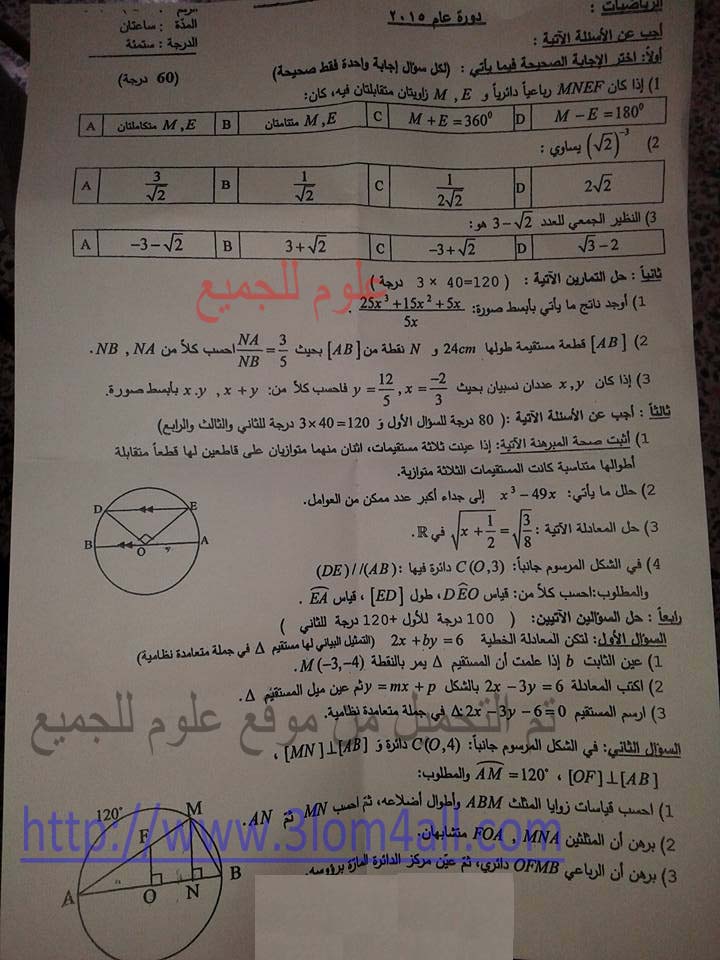 الرياضيات :
دورة عام ٢٠١٥
المدّة : ساعتان
الدرجة : ستمئة
أجب عن الأسئلة الآتية :
أولاً: اختر الإجابة الصحيحة فيما يأتي : (لكل سؤال إجابة واحدة فقط صحيحة) (60 درجة)
1) إذا كان MNEF رباعياً دائرياً و M , E زاويتان متقابلتان فيه، كان:
A M,E متكاملتان B M,E متتامتان C M+E=360⁰ D M−E=180⁰
2) (√2)⁻³ يساوي :
A 3/√2 B 1/√2 C 1/2√2 D 2√2
3) النظير الجمعي للعدد 3−√2 هو:
A −3−√2 B 3+√2 C −3+√2 D √3−2
ثانياً : حل التمارين الآتية : ( 120=40 × 3 درجة)
علوم للجميع
1) أوجد ناتج ما يأتي بأبسط صورة: (25x³+15x²+5x)/5x .
2) [AB] قطعة مستقيمة طولها 24cm و N نقطة من [AB] بحيث NA/NB=3/5 احسب كلاً من NB , NA .
3) إذا كان x,y عددان نسبيان بحيث y=12/5 , x=−2/3 فاحسب كلاً من: x.y , x+y بأبسط صورة.
ثالثاً : أجب عن الأسئلة الآتية :( 80 درجة للسؤال الأول و 120=40×3 درجة للثاني والثالث والرابع)
1) أثبت صحة المبرهنة الآتية: إذا عينت ثلاثة مستقيمات، اثنان منهما متوازيان على قاطعين لها قطعاً متقابلة
أطوالها متناسبة كانت المستقيمات الثلاثة متوازية.
2) حلل ما يأتي: x³−49x إلى جداء أكبر عدد ممكن من العوامل.
3) حل المعادلة الآتية : √(x+1/2)=√(3/8) في ℝ.
4) في الشكل المرسوم جانباً: C(O,3) دائرة فيها :(DE)//(AB)
والمطلوب:احسب كلاً من: قياس DÊO، طول [ED] ، قياس EA .
D E B O A
رابعاً : حل السؤالين الآتيين: ( 100 درجة للأول +120 درجة للثاني )
السؤال الأول: لتكن المعادلة الخطية 2x+by=6 (التمثيل البياني لها مستقيم Δ في جملة متعامدة نظامية)
1) عين الثابت b إذا علمت أن المستقيم Δ يمر بالنقطة M(−3,−4).
2) اكتب المعادلة 2x−3y=6 بالشكل y=mx+p ثم عين ميل المستقيم Δ.
3) ارسم المستقيم Δ:2x−3y−6=0 في جملة متعامدة نظامية.
تم التحميل من موقع علوم للجميع
السؤال الثاني: في الشكل المرسوم جانباً: C(O,4) دائرة و [MN]⊥[AB] ،
[OF]⊥[AB] ، AM=120° والمطلوب:
1) احسب قياسات زوايا المثلث ABM وأطوال أضلاعه، ثمّ احسب MN ثمّ AN.
http://www.3lom4all.com
2) برهن أن المثلثين FOA , MNA متشابهان.
3) برهن أن الرباعي OFMB دائري، ثمّ عيّن مركز الدائرة المارّة برؤوسه.
120° M F A O N B